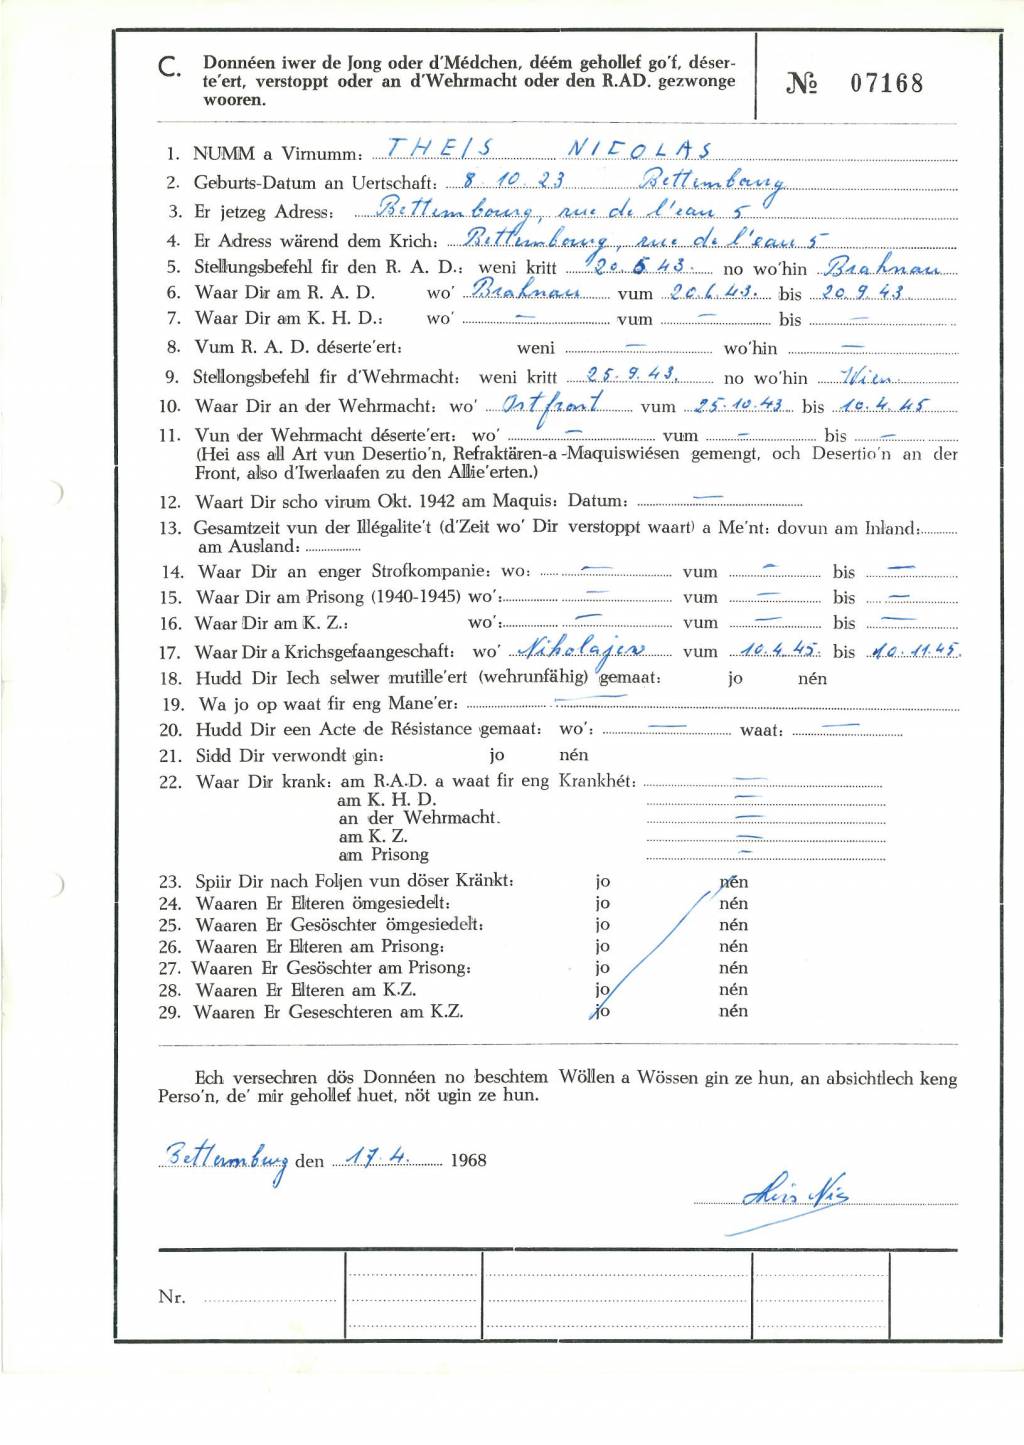 C. Donnéen iwer de Jong oder d'Médchen, déém gehollef go'f, déser-
te'ert, verstoppt oder an d'Wehrmacht oder den R.AD. gezwonge
wooren.
№ 07168
1. NUMM a Virnumm: THEIS NICOLAS
2. Geburts-Datum an Uertschaft: 8 10. 23 Bettembourg
3. Er jetzeg Adress: Bettembourg, rue de l'eau 5
4. Er Adress wärend dem Krich: Bettembourg, rue de l'eau 5
5. Stellungsbefehl fir den R. A. D.: weni kritt 20. 5 43. no wo'hin Brahnau
6. Waar Dir am R. A. D. wo' Brahnau vum 20.6.43. bis 20.9.43.
7. Waar Dir am K. H. D.: wo' — vum — bis —
8. Vum R. A. D. déserte'ert: weni — wo'hin —
9. Stellongsbefehl fir d'Wehrmacht: weni kritt 25.9.43. no wo'hin Wien
10. Waar Dir an der Wehrmacht: wo' Ostfront vum 25.10.43 bis 10.4.45
11. Vun der Wehrmacht déserte'ert: wo' — vum — bis —
(Hei ass all Art vun Desertio'n, Refraktären-a-Maquiswiésen gemengt, och Desertio'n an der
Front, also d'Iwerlaafen zu den Allie'erten.)
12. Waart Dir scho virum Okt. 1942 am Maquis: Datum: —
13. Gesamtzeit vun der Illégalite't (d'Zeit wo' Dir verstoppt waart) a Me'nt: dovun am Inland:
am Ausland:
14. Waar Dir an enger Strofkompanie: wo: — vum — bis —
15. Waar Dir am Prisong (1940-1945) wo': — vum — bis —
16. Waar Dir am K. Z.: wo': — vum — bis —
17. Waar Dir a Krichsgefaangeschaft: wo' Nikolajew vum 10.4.45. bis 10.11.45.
18. Hudd Dir Iech selwer mutille'ert (wehrunfähig) gemaat: jo nén
19. Wa jo op waat fir eng Mane'er: —
20. Hudd Dir een Acte de Résistance gemaat: wo': — waat: —
21. Sidd Dir verwondt gin: jo nén
22. Waar Dir krank: am R.A.D. a waat fir eng Krankhét: —
am K. H. D. —
an der Wehrmacht. —
am K. Z. —
am Prisong —
23. Spiir Dir nach Foljen vun döser Kränkt: jo nén
24. Waaren Er Elteren ömgesiedelt: jo nén
25. Waaren Er Gesöschter ömgesiedelt: jo nén
26. Waaren Er Elteren am Prisong: jo nén
27. Waaren Er Gesöschter am Prisong: jo nén
28. Waaren Er Elteren am K.Z. jo nén
29. Waaren Er Geseschteren am K.Z. jo nén
Ech versechren dös Donnéen no beschtem Wöllen a Wössen gin ze hun, an absichtlech keng
Perso'n, de' mir gehollef huet, nöt ugin ze hun.
Bettemburg den 17. 4. 1968
Theis Nic
Nr.